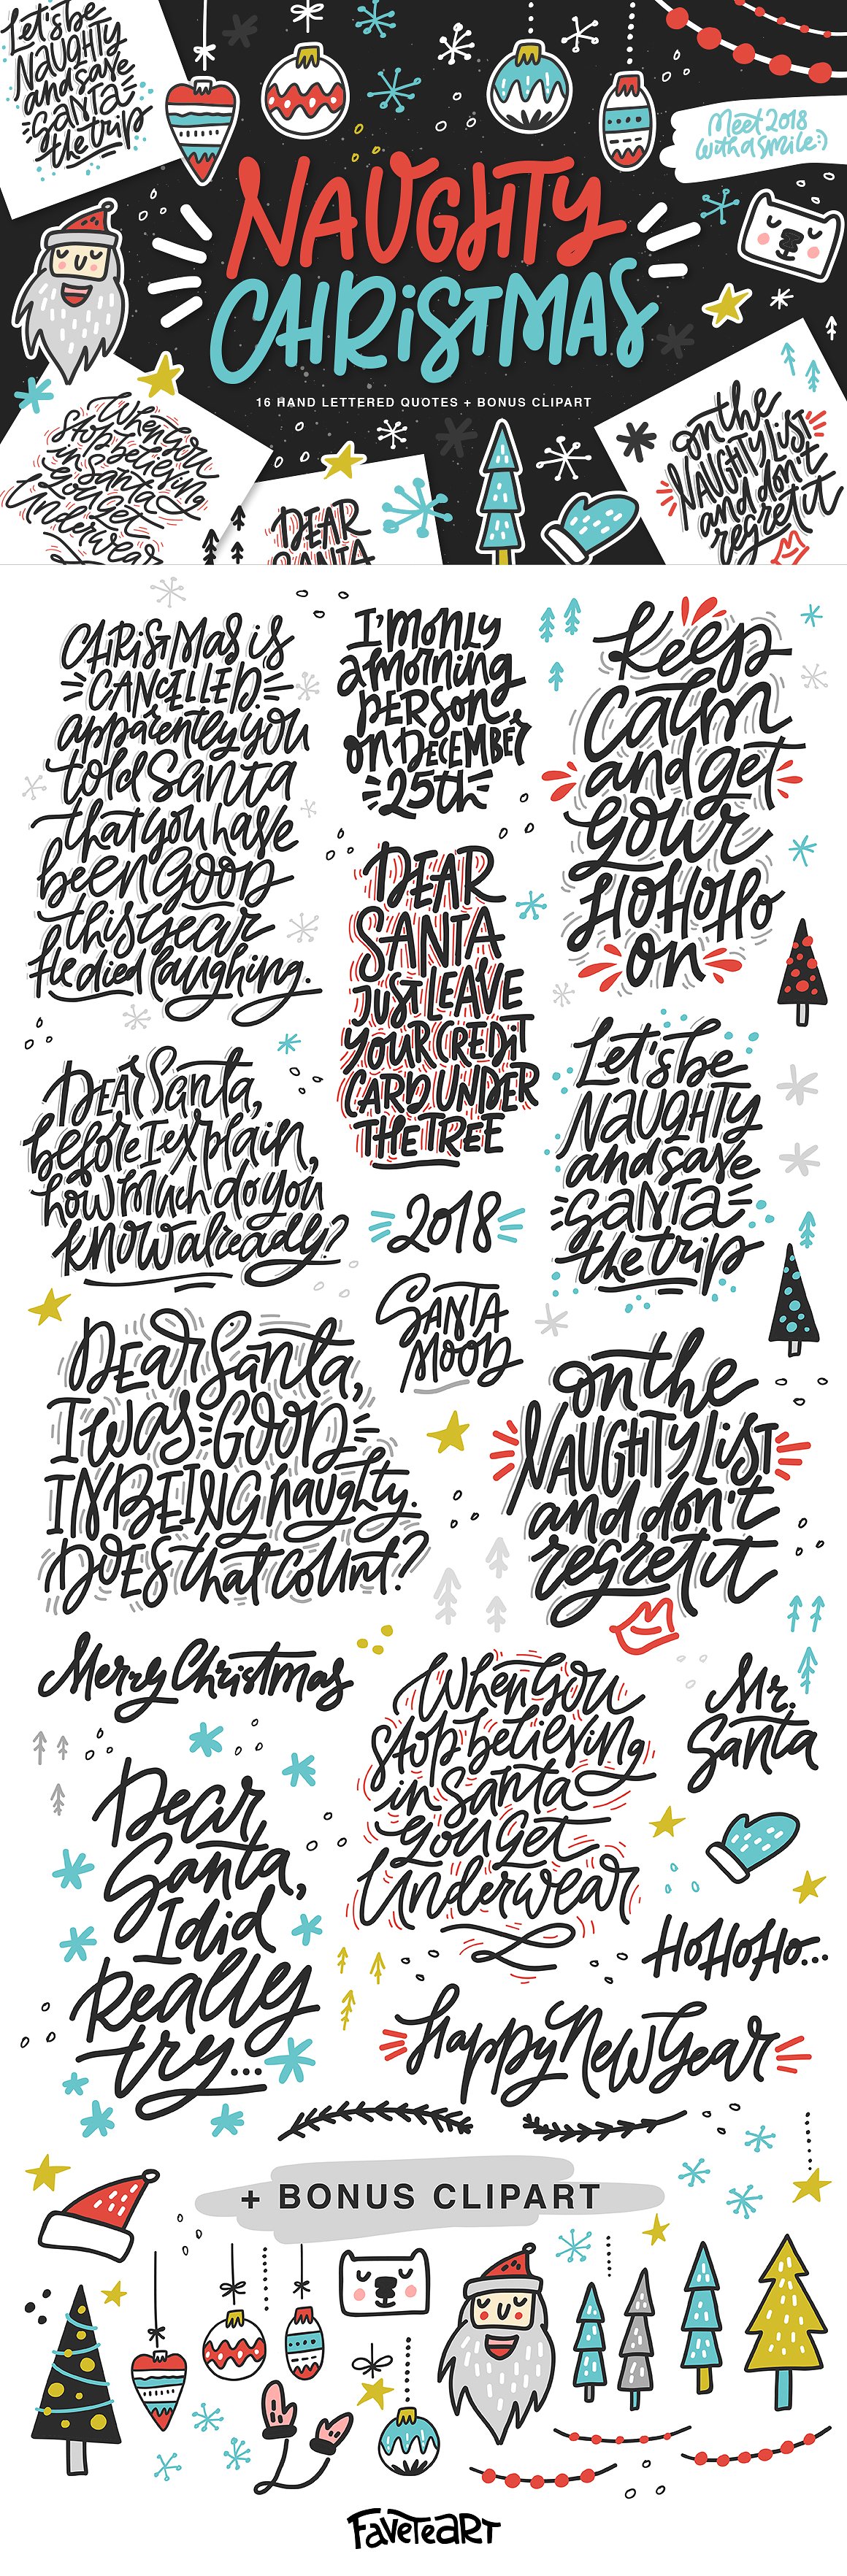 Let's be
NAUGHTY
and save
SANTA
the trip
Meet 2018
with a smile:)
NAUGHTY
CHRiSTMAS
16 HAND LETTERED QUOTES + BONUS CLIPART
When you
stop believing
in Santa
you get
Underwear
DEAR
SANTA
on the
NAUGHTY LiST
and don't
regret it
CHRiSTMas is
CANCELLED.
apparently you
told Santa
that you have
been Good
this year
He died laughing.
I'm only
a morning
PERSon
on DECEMBER
25th
Keep
calm
and get
your
HoHoHo
on
DEAR
SANTA
JUST LEAVE
YOUR CREDiT
CARD UNDER
THE TREE
Let's be
NAUGHTY
and save
SANTA
the trip
DEAR Santa,
before I explain,
how much do you
know already?
2018
SANTA
MOOD
DEAR Santa,
I WAS GOOD
IN BEING naughty.
DOES that count?
on the
NAUGHTY LiST
and don't
regret it
Merry Christmas
When you
stop believing
in Santa
you Get
Underwear
Mr.
Santa
Dear
Santa,
I did
Really
try...
HoHoHo...
Happy New Year
+ BONUS CLIPART
FaveteART